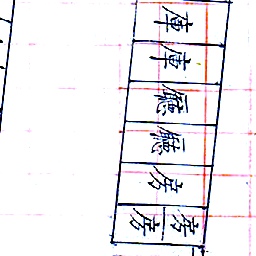 庫
庫
廳
廳
房
房 房